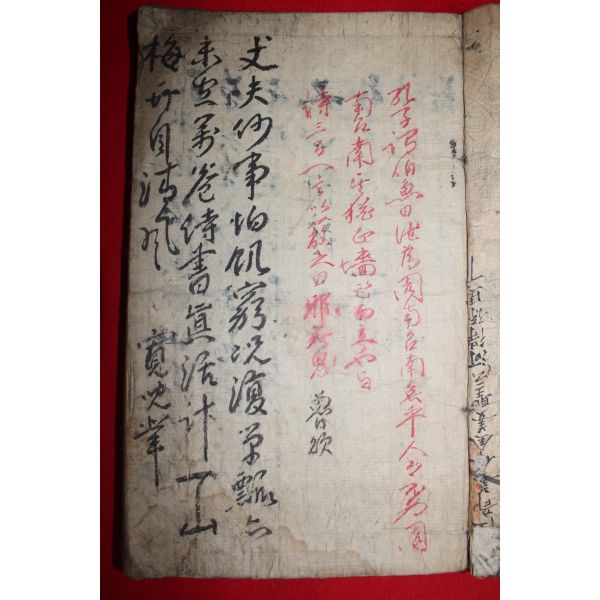 孔子謂伯魚曰汝爲周南召南矣乎人而不爲周
南召南其猶正墻面而立也與
詩三百一言以蔽之曰
魯頌
丈夫何事怕飢窮況復箪瓢亦
未空萬卷詩書眞活計一山
梅竹自清風